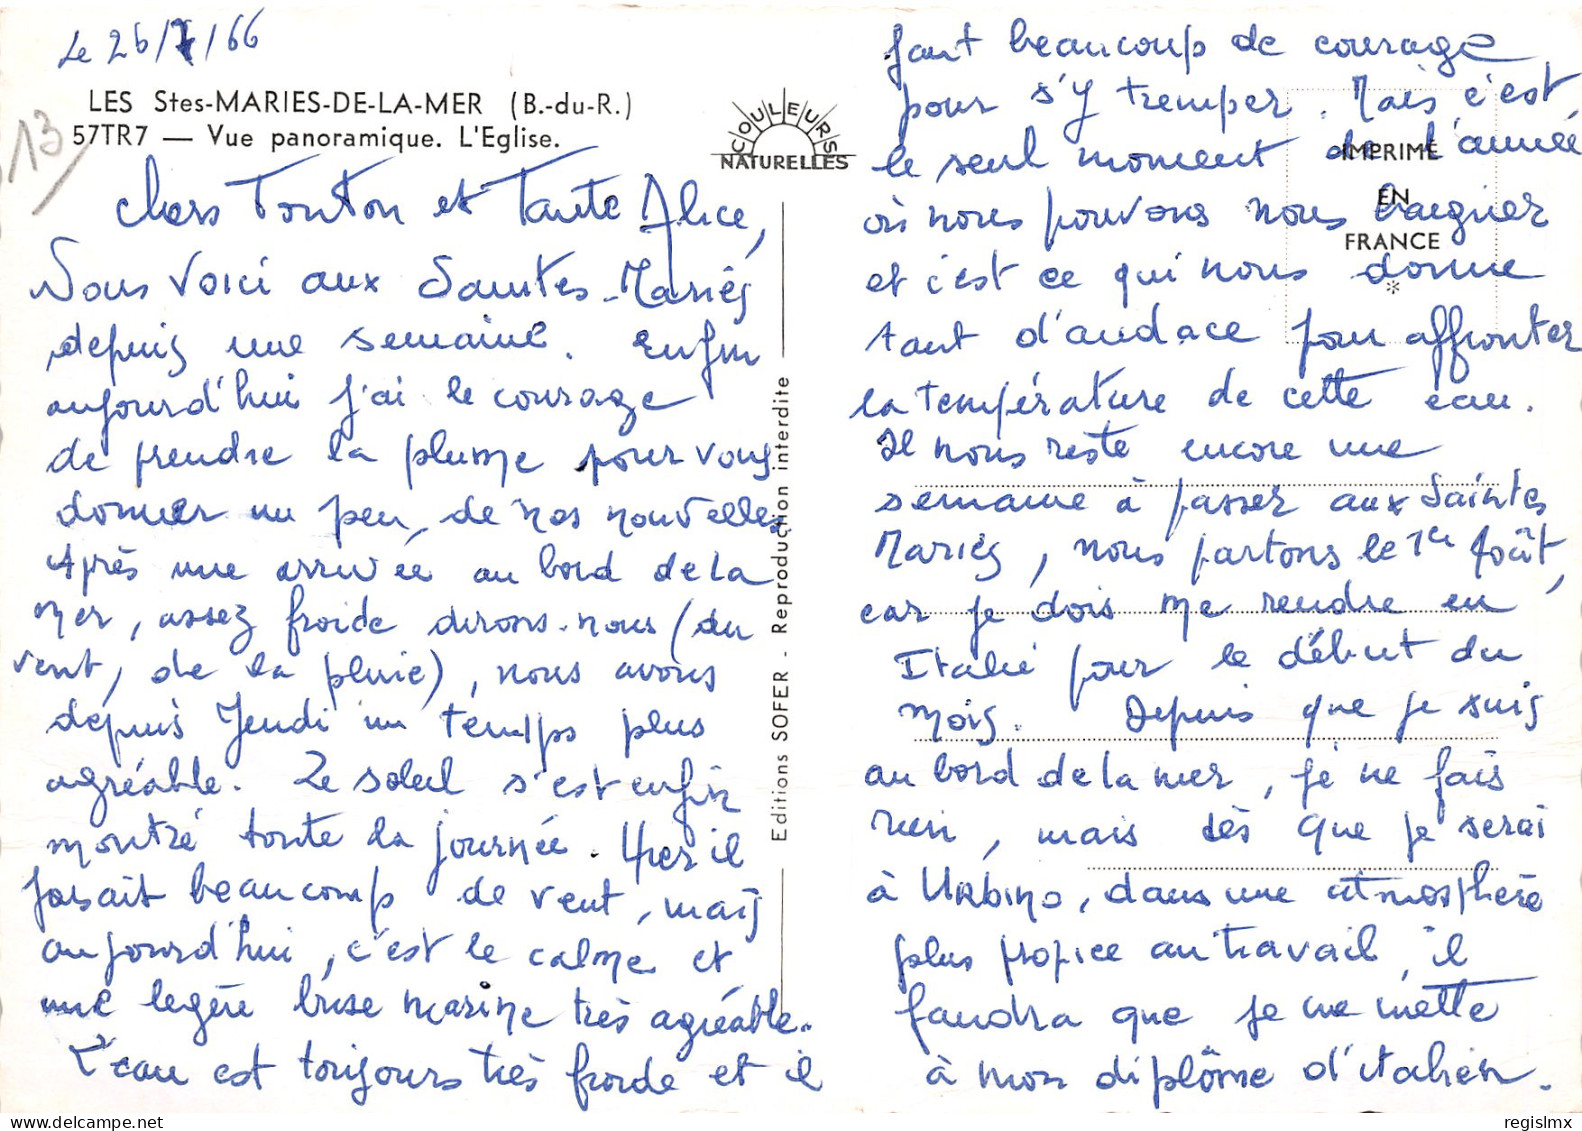 Le 26/7/66
LES Stes-MARIES-DE-LA-MER (B.-du-R.)
57TR7 — Vue panoramique. L'Eglise.
13
COULEURS
NATURELLES
Chers Tonton et Tante Alice,
Nous voici aux Saintes-Maries
depuis une semaine. Enfin
aujourd'hui j'ai le courage
de prendre la plume pour vous
donner un peu de nos nouvelles
Après une arrivée au bord de la
mer, assez froide dirons-nous (du
vent, de la pluie), nous avons
depuis Jeudi un temps plus
agréable. Le soleil s'est enfin
montré toute la journée. Hier il
faisait beaucoup de vent, mais
aujourd'hui, c'est le calme et
une legère brise marine très agréable.
L'eau est toujours très froide et il
Editions SOFER - Reproduction interdite
IMPRIMÉ
EN
FRANCE
*
faut beaucoup de courage
pour s'y tremper. Mais c'est
le seul moment de l'année
où nous pouvons nous baigner
et c'est ce qui nous donne
tant d'audace pour affronter
la température de cette eau.
Il nous reste encore une
semaine à passer aux Saintes
Maries, nous partons le 1er Août,
car je dois me rendre en
Italie pour le début du
mois. Depuis que je suis
au bord de la mer, je ne fais
rien, mais dès que je serai
à Urbino, dans une atmosphère
plus propice au travail, il
faudra que je me mette
à mon diplôme d'italien.
regislmx